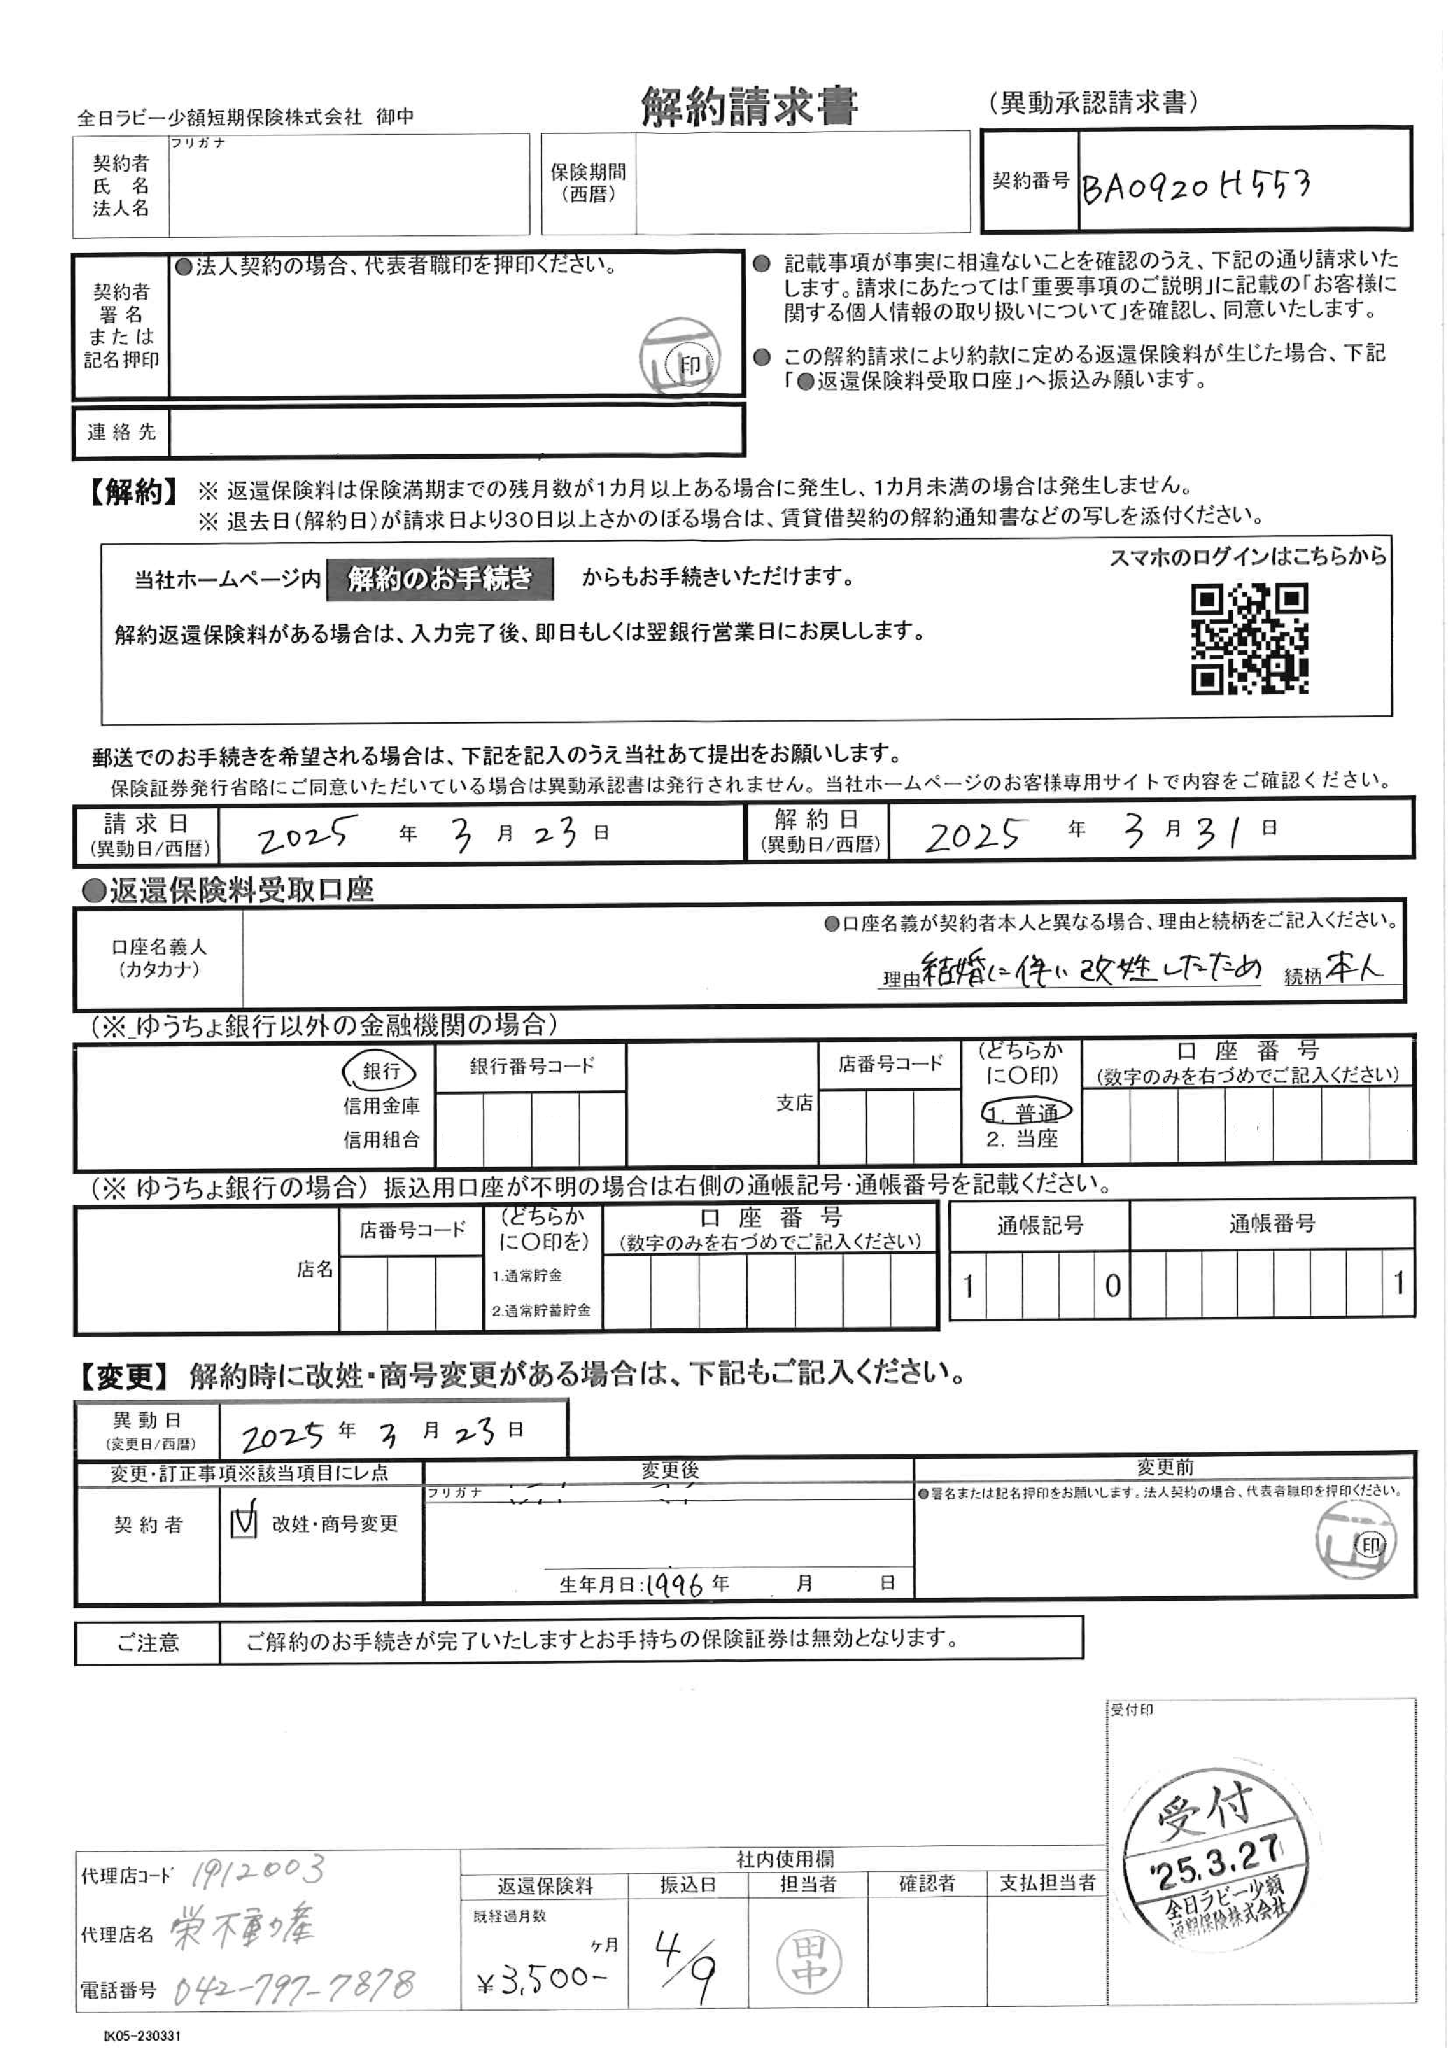 全日ラビー少額短期保険株式会社 御中
解約請求書
（異動承認請求書）
契約者
氏 名
法人名
フリガナ
保険期間
（西暦）
契約番号
BA0920H553
契約者
署 名
または
記名押印
●法人契約の場合、代表者職印を押印ください。
印
連絡先
● 記載事項が事実に相違ないことを確認のうえ、下記の通り請求いた
します。請求にあたっては「重要事項のご説明」に記載の「お客様に
関する個人情報の取り扱いについて」を確認し、同意いたします。
● この解約請求により約款に定める返還保険料が生じた場合、下記
「●返還保険料受取口座」へ振込み願います。
【解約】 ※ 返還保険料は保険満期までの残月数が1カ月以上ある場合に発生し、1カ月未満の場合は発生しません。
※ 退去日（解約日）が請求日より30日以上さかのぼる場合は、賃貸借契約の解約通知書などの写しを添付ください。
スマホのログインはこちらから
当社ホームページ内 解約のお手続き からもお手続きいただけます。
解約返還保険料がある場合は、入力完了後、即日もしくは翌銀行営業日にお戻しします。
郵送でのお手続きを希望される場合は、下記を記入のうえ当社あて提出をお願いします。
保険証券発行省略にご同意いただいている場合は異動承認書は発行されません。当社ホームページのお客様専用サイトで内容をご確認ください。
請求日
（異動日/西暦）
2025 年 3 月 23 日
解約日
（異動日/西暦）
2025 年 3 月 31 日
●返還保険料受取口座
口座名義人
（カタカナ）
●口座名義が契約者本人と異なる場合、理由と続柄をご記入ください。
理由 結婚に伴い改姓したため 続柄 本人
（※ ゆうちょ銀行以外の金融機関の場合）
銀行
信用金庫
信用組合
銀行番号コード
支店
店番号コード
（どちらか
に〇印）
1. 普通
2. 当座
口座番号
（数字のみを右づめでご記入ください）
（※ ゆうちょ銀行の場合）振込用口座が不明の場合は右側の通帳記号・通帳番号を記載ください。
店名
店番号コード
（どちらか
に〇印を）
1.通常貯金
2.通常貯蓄貯金
口座番号
（数字のみを右づめでご記入ください）
通帳記号
1 0
通帳番号
1
【変更】 解約時に改姓・商号変更がある場合は、下記もご記入ください。
異動日
（変更日/西暦）
2025 年 3 月 23 日
変更・訂正事項※該当項目にレ点
変更後
変更前
契約者
改姓・商号変更
フリガナ
生年月日:1996年 月 日
●署名または記名押印をお願いします。法人契約の場合、代表者職印を押印ください。
印
ご注意
ご解約のお手続きが完了いたしますとお手持ちの保険証券は無効となります。
受付印
受付
'25.3.27
全日ラビー少額
短期保険株式会社
代理店コード 1912003
代理店名 栄不動産
電話番号 042-797-7878
社内使用欄
返還保険料
振込日
担当者
確認者
支払担当者
既経過月数
ヶ月
¥3,500-
4/9
田中
IK05-230331